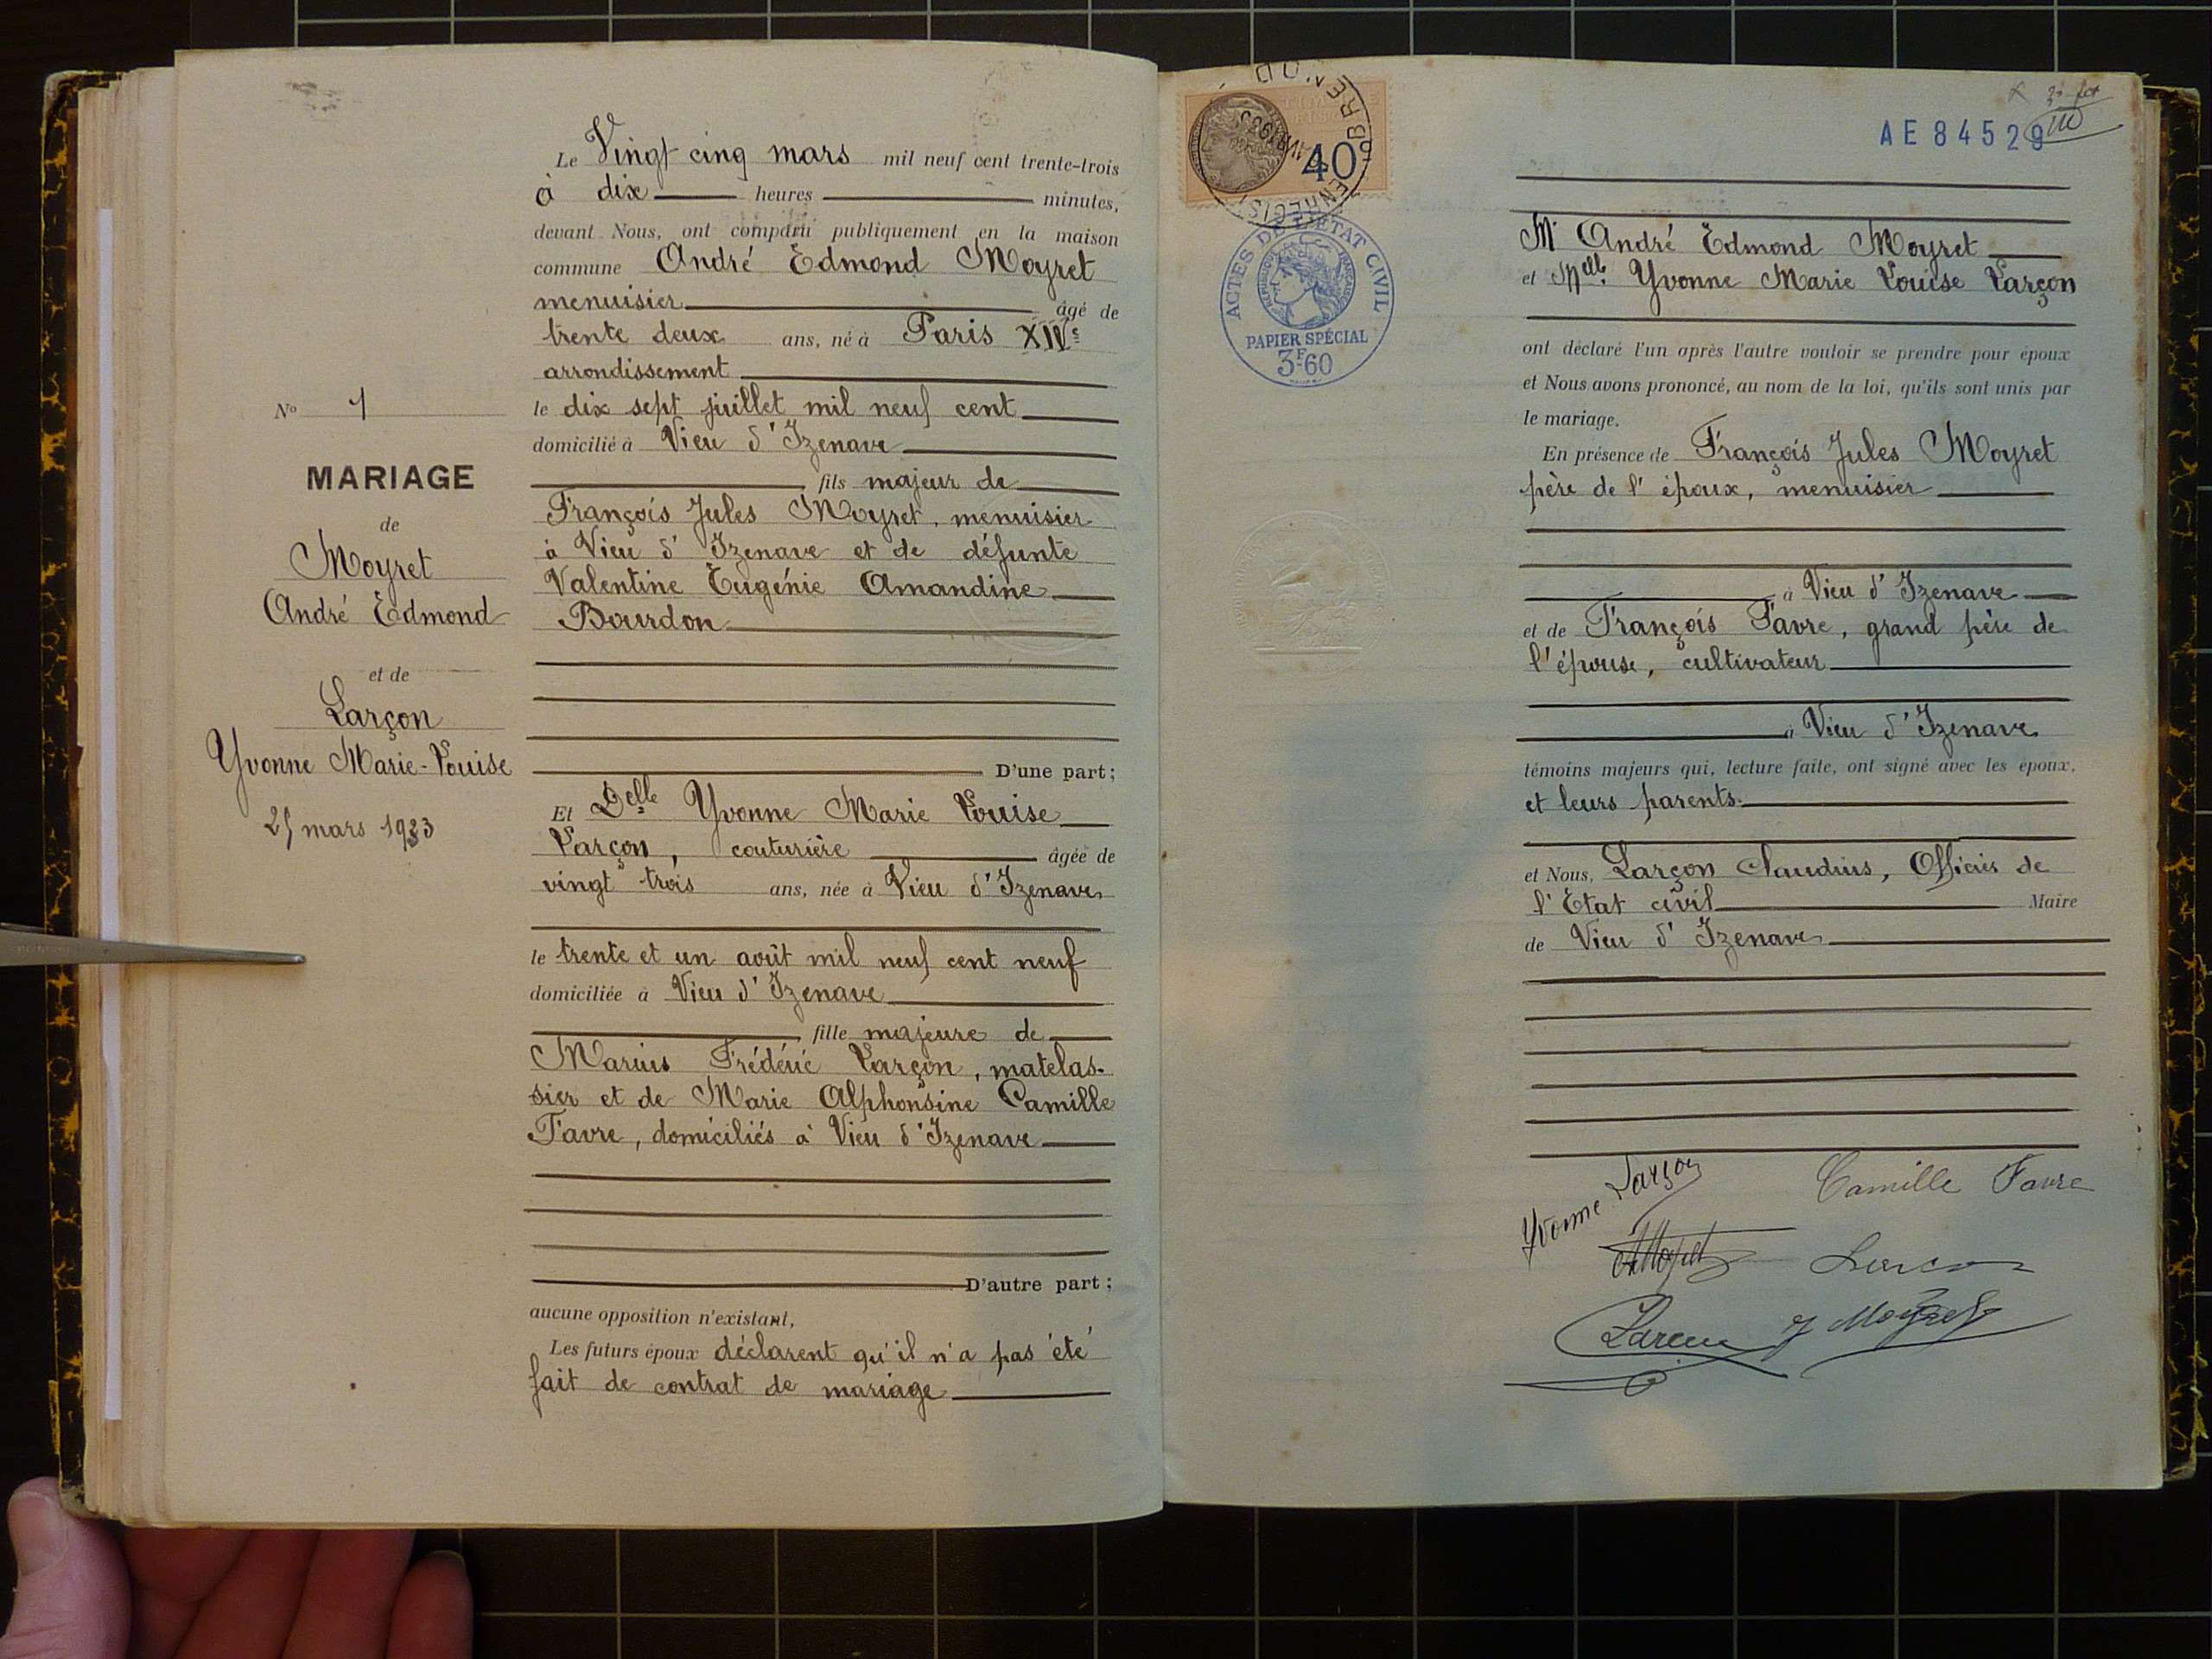 Le Vingt cinq mars mil neuf cent trente-trois
à dix heures minutes,
devant Nous, ont comparu publiquement en la maison
commune André Edmond Moyret
menuisier âgé de
trente deux ans, né à Paris XIVe
arrondissement
le dix sept juillet mil neuf cent
domicilié à Vieu d'Izenave
fils majeur de
François Jules Moyret, menuisier
à Vieu d'Izenave et de défunte
Valentine Eugénie Amandine
Bourdon
D'une part;
Et Delle Yvonne Marie Louise
Larçon, couturière âgée de
vingt trois ans, née à Vieu d'Izenave
le trente et un août mil neuf cent neuf
domiciliée à Vieu d'Izenave
fille majeure de
Marius Frédéric Larçon, matelas-
sier et de Marie Alphonsine Camille
Favre, domiciliés à Vieu d'Izenave
D'autre part;
aucune opposition n'existant,
Les futurs époux déclarent qu'il n'a pas été
fait de contrat de mariage
No 1
MARIAGE
de
Moyret
André Edmond
et de
Larçon
Yvonne Marie-Louise
25 mars 1933
40
ACTES DE L'ETAT CIVIL
REPUBLIQUE FRANÇAISE
PAPIER SPÉCIAL
3F60
AE 84529
Mr André Edmond Moyret
et Melle Yvonne Marie Louise Larçon
ont déclaré l'un après l'autre vouloir se prendre pour époux
et Nous avons prononcé, au nom de la loi, qu'ils sont unis par
le mariage.
En présence de François Jules Moyret
père de l'époux, menuisier
à Vieu d'Izenave
et de François Favre, grand père de
l'épouse, cultivateur
à Vieu d'Izenave
témoins majeurs qui, lecture faite, ont signé avec les époux,
et leurs parents.
et Nous, Larçon Claudius, Officier de
l'Etat civil Maire
de Vieu d'Izenave
Yvonne Larçon
Camille Favre
A Moyret
Larcon
Larçon
J Moyret